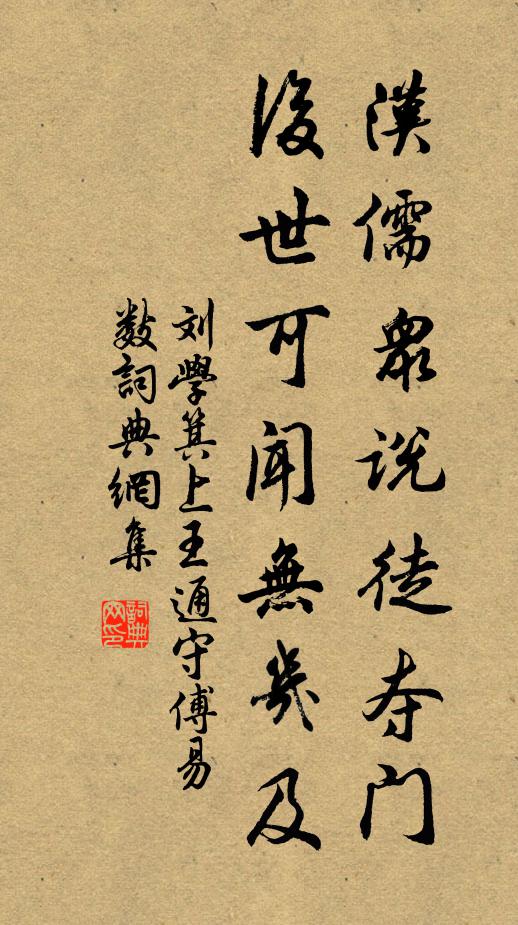 漢儒衆说徒夺门
後世可聞無幾及
刘學箕上王通守傅易
数詞典網集
詞典網印